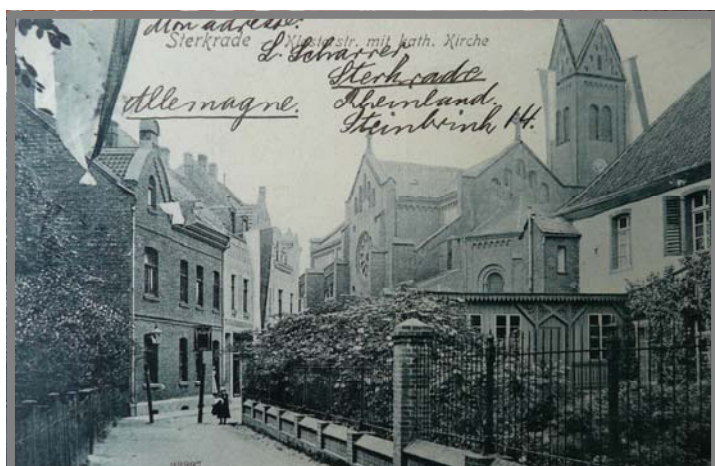 Mon adresse:
Sterkrade Klosterstr. mit kath. Kirche
L. Scharrer
Sterkrade
Allemagne. Rheinland.
Steinbrink 14.